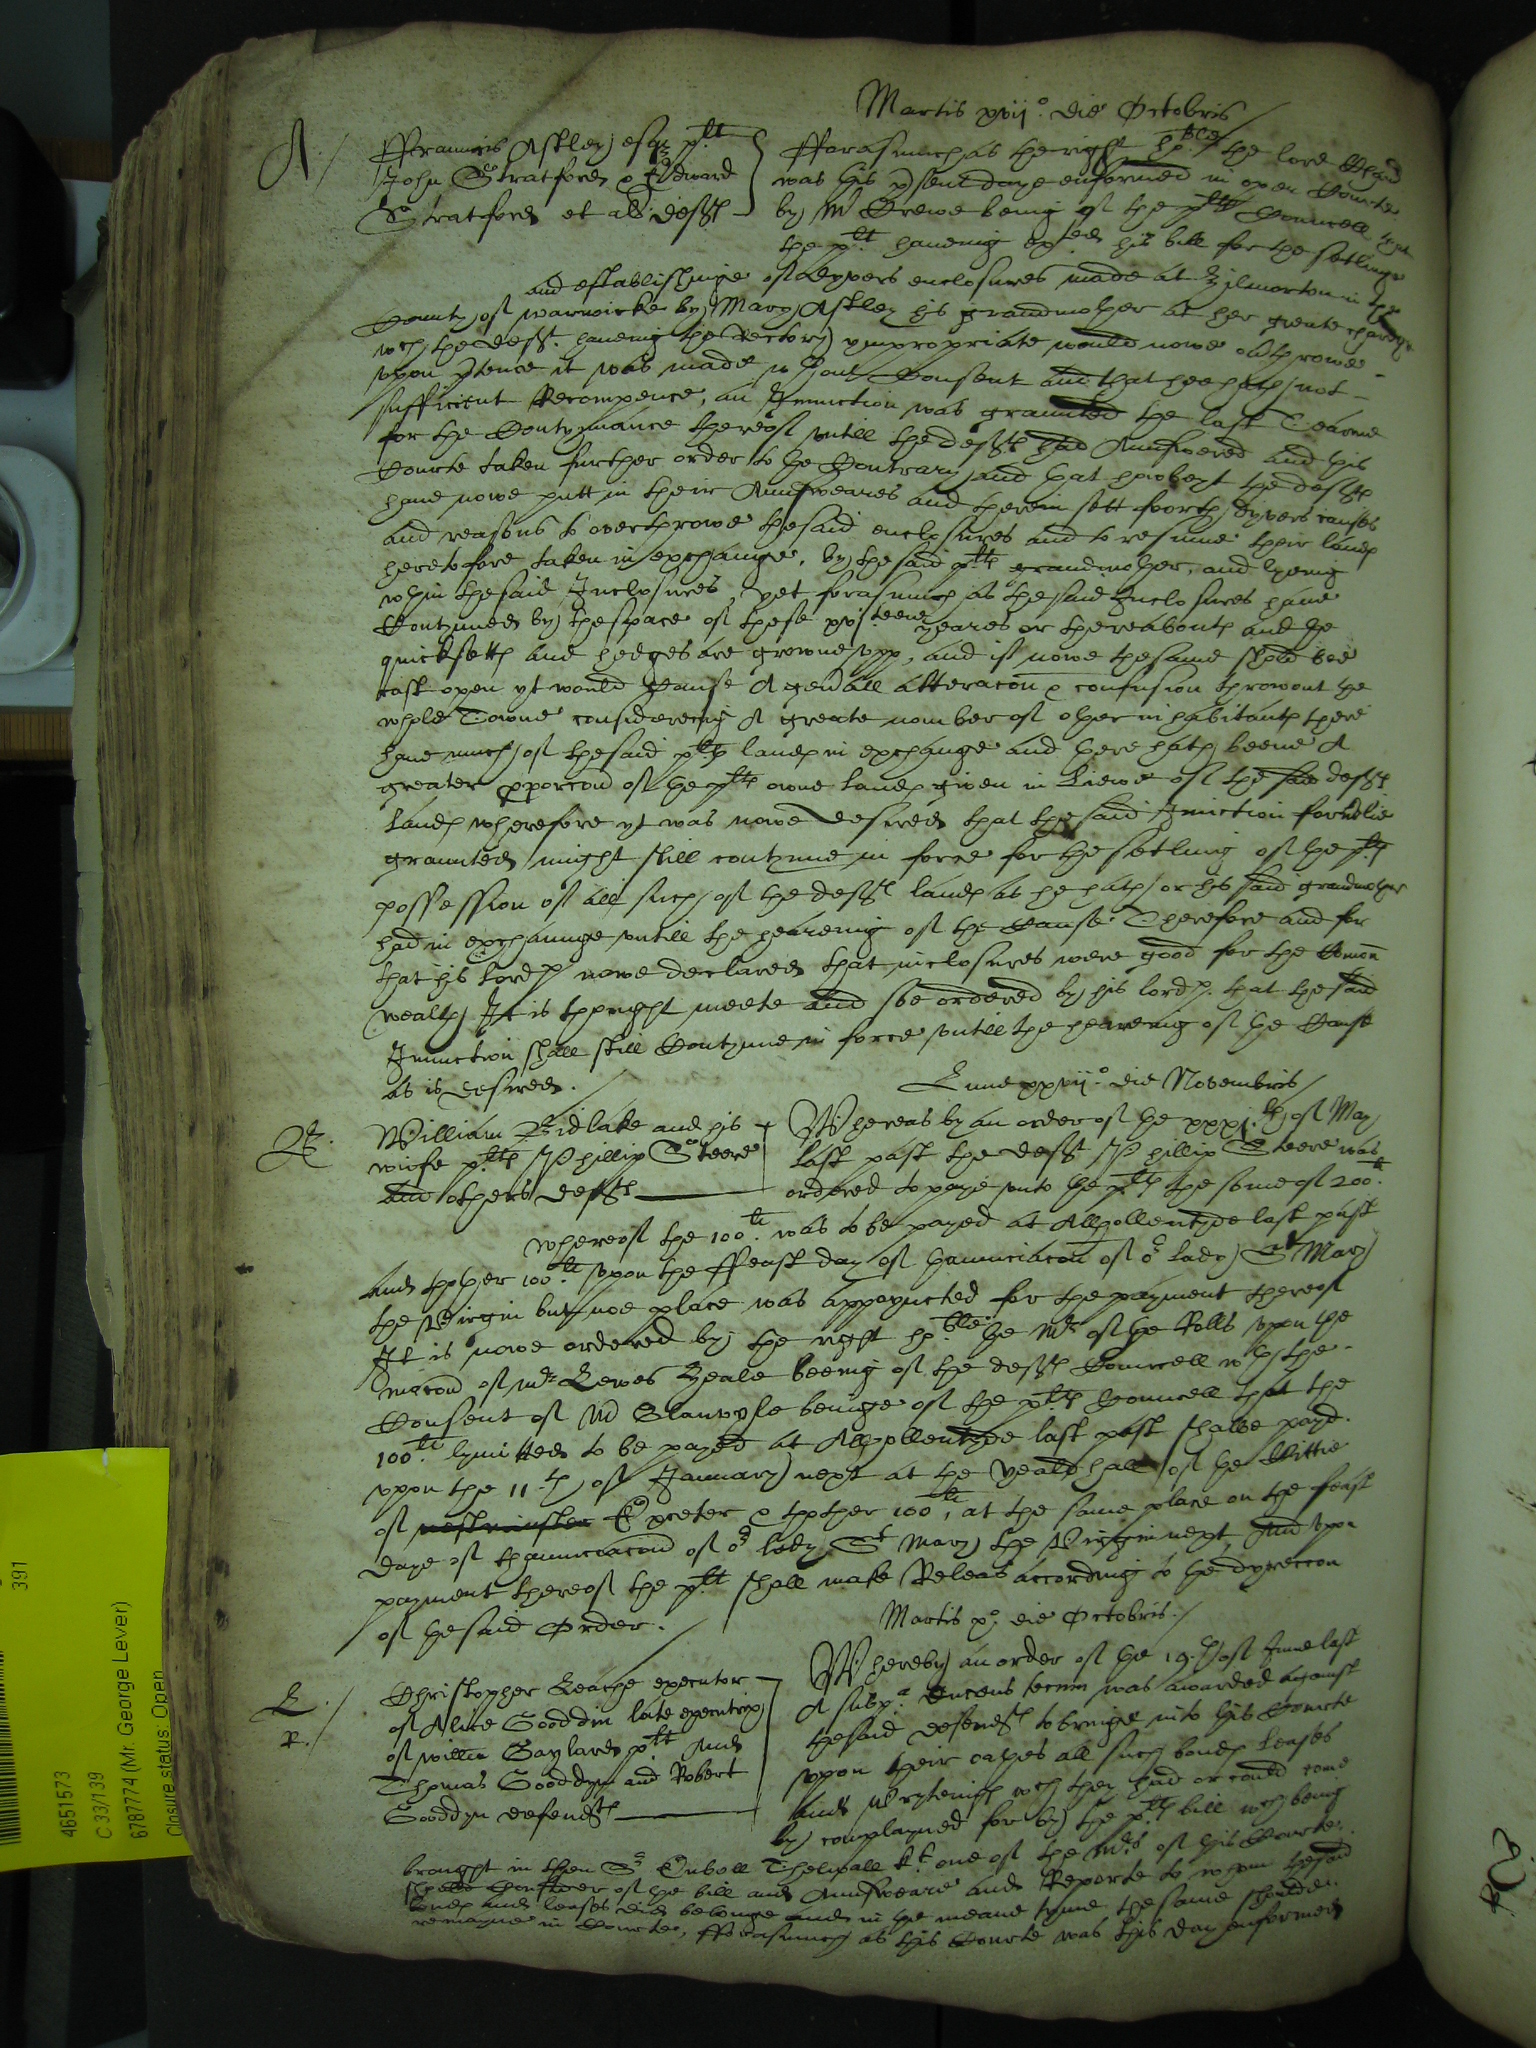 Martis xvij.o die Octobris
A./
Ffrauncis Astley esqr plt
John Stratford & Edward
Stratford et alij deftes
Fforasmuch as the right hoble the lord Chaun
was this psent daye enformed in open Courte
by Mr Crewe being of the pltes Councell that
the plt haveing exted his bill for the setlinge
and establishinge of dyvers enclosures made at Wilmerton in the
County of Warwicke by Mary Astley his grandmother at her greate chardge
wch the deft. haveing the Rectory ympropriate would nowe overthrowe
upon ptence it was made wthout Consent and that hee hath not
sufficient Recompence, an Iniunction was graunted the last Tearme
for the Contynuance thereof untill the deftes had Aunswered and this
Courte taken further order to the Contrary and that howbeyt the deftes
have nowe putt in their Aunsweares and therein sett foorth dyvers causes
and reasons to overthrowe the said enclosures and to resume their landes
heretofore taken in exchaunge, by the said pltes grandmother, and lyeing
wthin the said Inclosures, yet forasmuch as the said Inclosures have
Contynued by the space of these xvjteene yeares or thereaboutes and the
quicksettes and hedges are growne upp, and if nowe the same shold bee
cast open yt would Cause A genall alteracon & confusion throwout the
whole Towne considereing A greate nomber of other inhabitantes there
have much of the said pltes landes in exchange and there hath beene A
greater pporcon of the pltes owne landes given in Liewe of the said deftes
landes wherefore yt was nowe desired that the said Iniunction formerlie
graunted might still contynue in force for the setling of the pltes
possession of all such of the deftes landes as he hath or his said grandmother
had in exchaunge untill the heareing of the Cause Therefore and for
that his lordp nowe declared that inclosures were good for the Comon
wealth It is thought meete and soe ordered by his lordp. that the said
Iniunction shall still Contynue in force untill the heareing of the Cause
as is desired./
Lune xxvij.o die Novembris/
B.
William Bidlake and his
wiefe pltes Phillip Steere
and others deftes
Whereas by an order of the xxxj.th of May
last past the deft Phillip Steere was
ordered to paye unto the pltes the some of 200.li
whereof the 100.li was to be payed at Allhollentyde last past
and thother 100.li upon the Ffeast day of thanunciacon of or lady St Mary
the Virgin but noe place was appoyncted for the payment thereof
It is nowe ordered by the right hoble the Mr of the Rolls upon the
mocon of Mr Lewes Heale beeing of the deftes Councell wth the
Consent of Mr Glanvyle beinge of the pltes Councell that the
100.li lymitted to be payed at Allhollentyde last past shalbe payd
upon the 11.th of January next at the yeald hall of the Cittie
of westminster Exceter & thother 100li, at the same place on the feast
daye of thanunciacon of or lady St Mary the Virgin next And upon
payment thereof the plt shall make Releas according to the dyreccon
of the said Order./
Martis x.o die Octobris./
L./
R./
Christopher Leache executor
of Alice Gooddin late executrix
of Willm Gaylard plt And
Thomas Gooddyn and Robert
Gooddyn defendtes
Whereby an order of the 19.th of June last
A subpa. ducens tecum was awarded against
the said defendtes to bringe into this Courte
upon their oathes all such bondes leases
and Wryteinges wch they had or could come
by complayned for by the pltes bill wch being
brought in then Sr Eubell Thelwall kt. one of the Mrs of this Courte
should Consider of the bill and Aunsweare and Reporte to whom the said
bondes and leases did belonge and in the meane tyme the same should
remayne in Courte, Fforasmuch as this Courte was this day enformed
391
4651573
C 33/139
6787774 (Mr. George Lever)
Closure status: Open